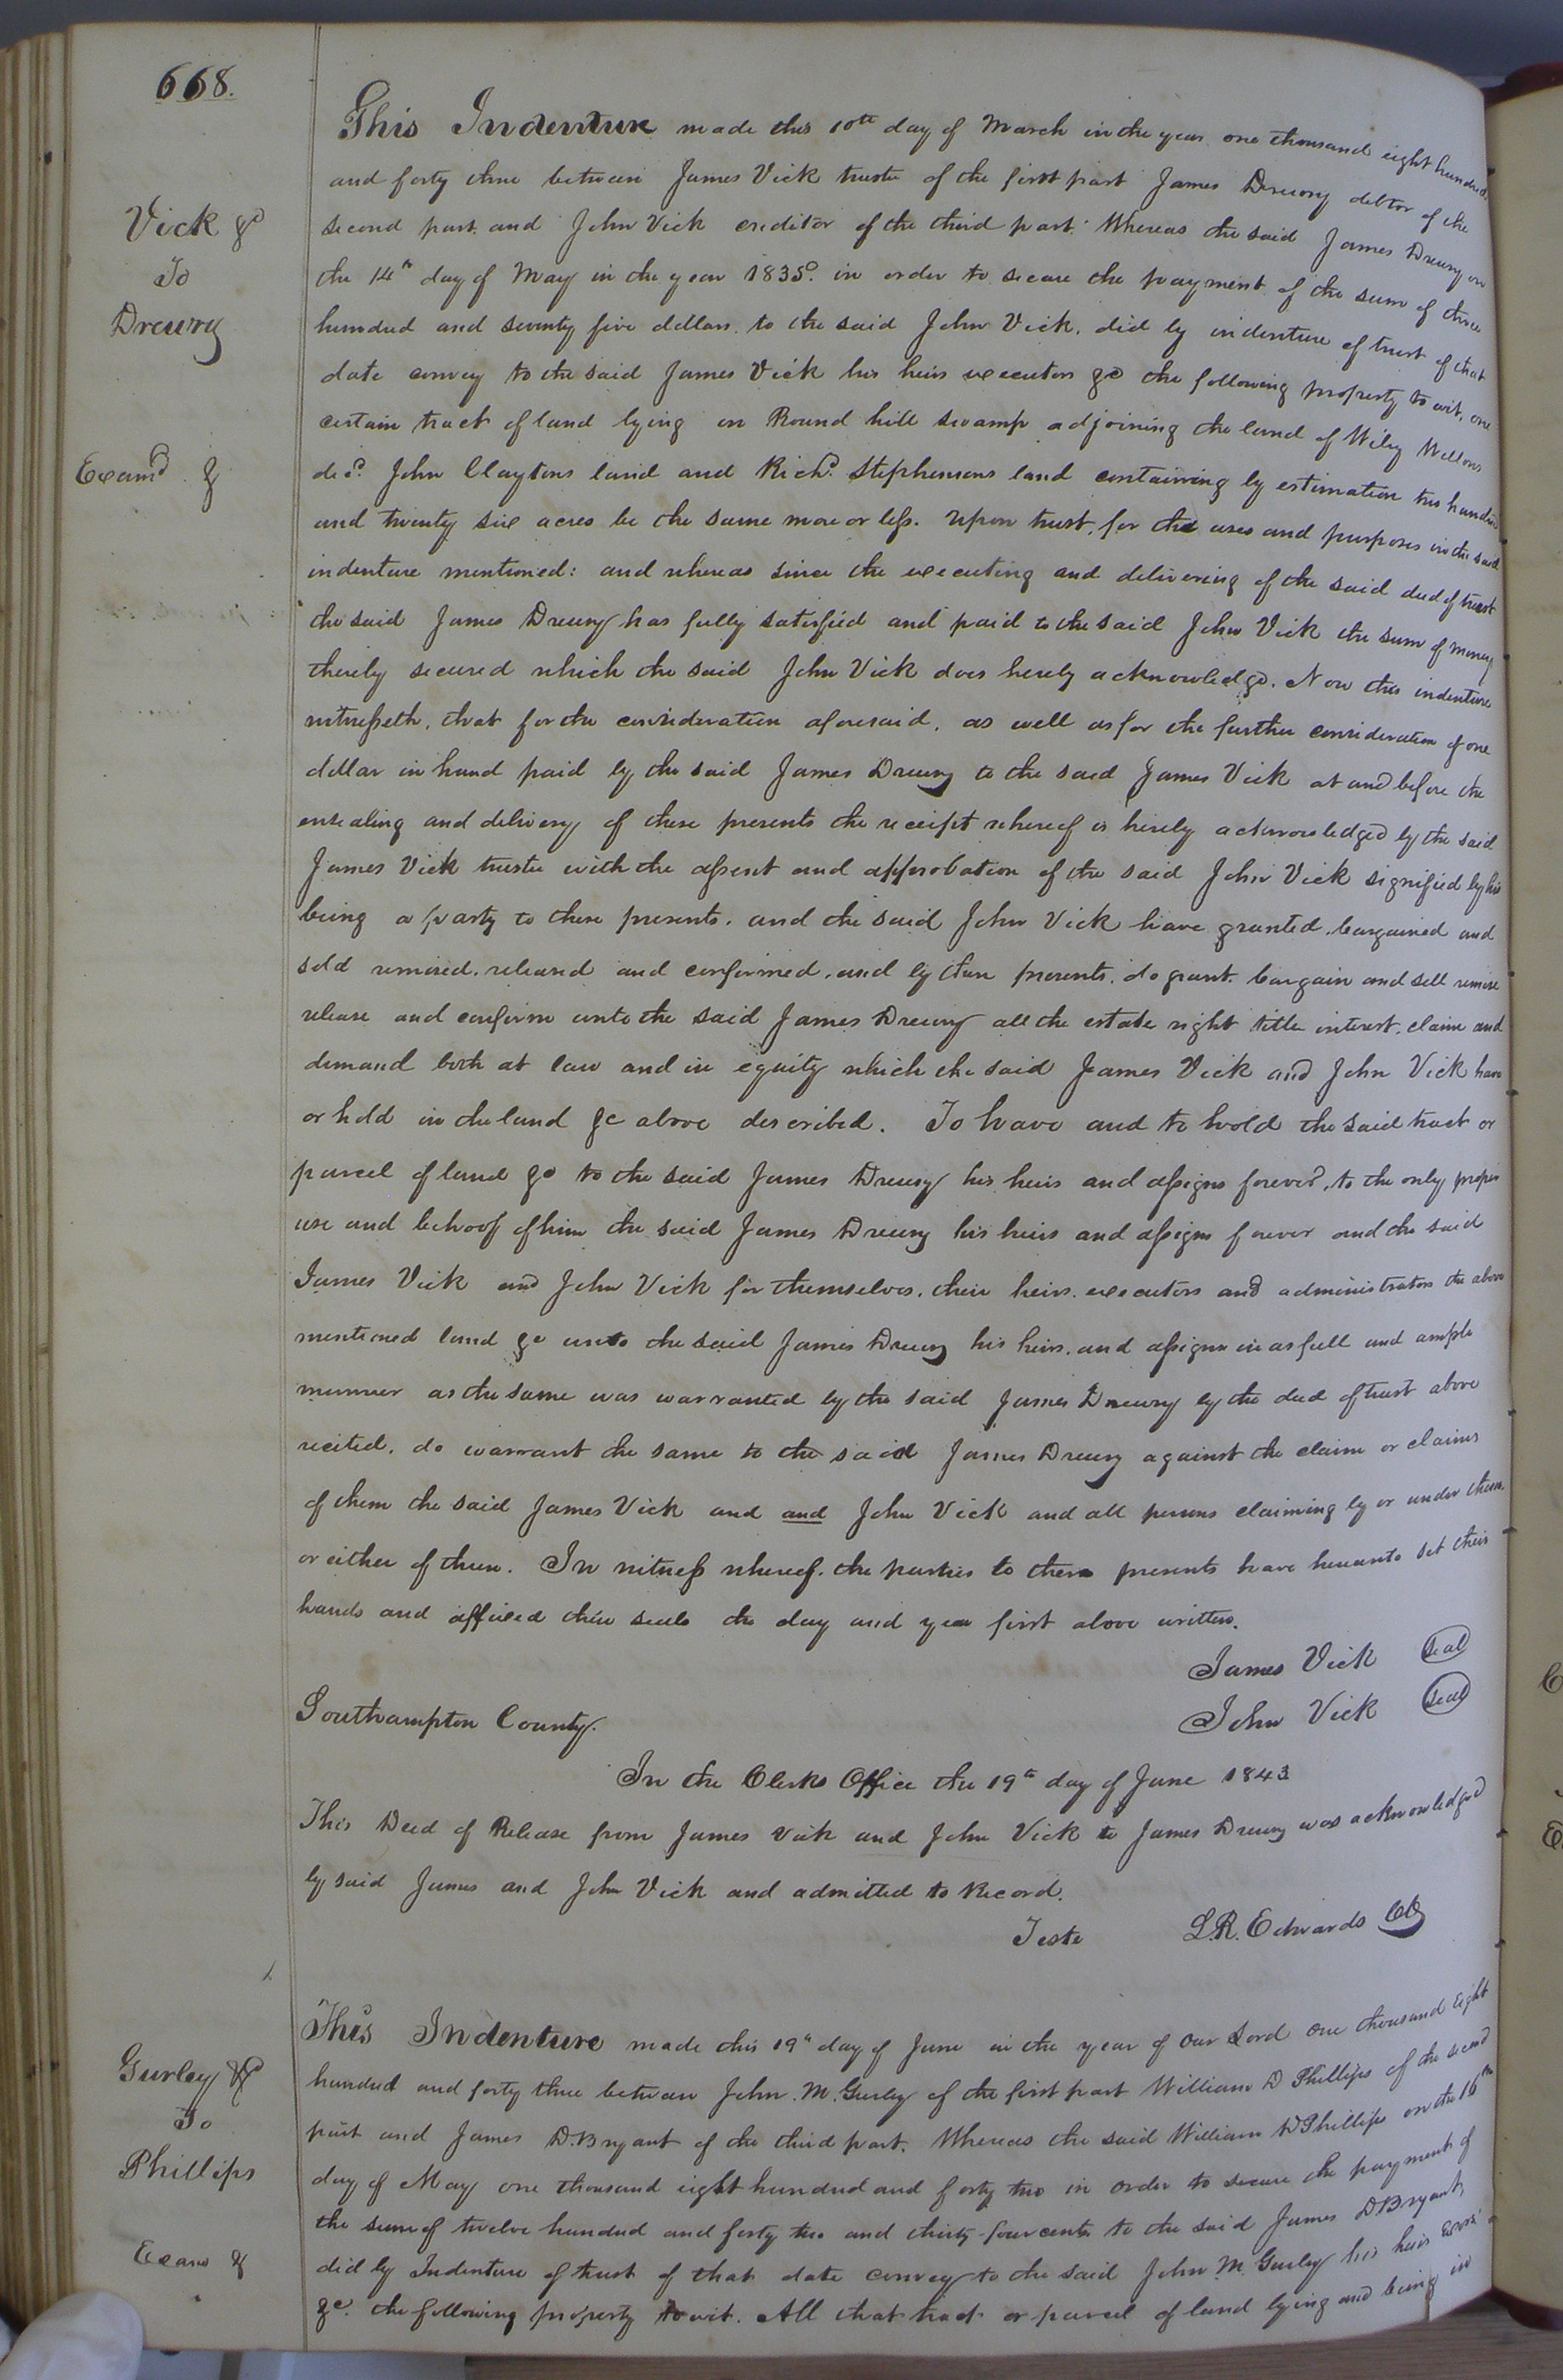 668.
This Indenture made this 10th day of March in the year one thousand eight hundred
and forty three between James Vick trustee of the first part James Drewry debtor of the
Vick &c
second part and John Vick creditor of the third part. Whereas the said James Drewry on
To
the 14th day of May in the year 1835. in order to secure the payment of the sum of three
Drewry
hundred and seventy five dollars to the said John Vick, did by indenture of trust of that
date convey to the said James Vick his heirs executors &c the following property to wit, one
certain tract of land lying on Round hill swamp adjoining the land of Wiley Wellons
Examd &
decd. John Claytons land and Richd. Stephensons land containing by estimation two hundred
and twenty six acres be the same more or less. Upon trust, for the uses and purposes in the said
indenture mentioned: and whereas since the executing and delivering of the said deed of trust
the said James Drewry has fully satisfied and paid to the said John Vick the sum of money
thereby secured which the said John Vick does hereby acknowledge. Now this indenture
witnesseth, that for the consideration aforesaid, as well as for the further consideration of one
dollar in hand paid by the said James Drewry to the said James Vick at and before the
ensealing and delivery of these presents the receipt whereof is hereby acknowledged by the said
James Vick trustee with the assent and approbation of the said John Vick signified by his
being a party to these presents. and the said John Vick have granted, bargained and
sold remised, released and confirmed, and by these presents, do grant, bargain and sell remise
release and confirm unto the said James Drewry all the estate right title interest, claim and
demand both at law and in equity which the said James Vick and John Vick have
or hold in the land &c above described. To have and to hold the said tract or
parcel of land &c to the said James Drewry his heirs and assigns forever, to the only proper
use and behoof of him the said James Drewry his heirs and assigns forever and the said
James Vick and John Vick for themselves, their heirs, executors and administrators the above
mentioned land &c unto the said James Drewry his heirs, and assigns in as full and ample
manner as the same was warranted by the said James Drewry by the deed of trust above
recited, do warrant the same to the said James Drewry against the claim or claims
of them the said James Vick and and John Vick and all persons claiming by or under them,
or either of them. In witness whereof, the parties to these presents have hereunto set their
hands and affixed their seals the day and year first above written.
James Vick seal
John Vick seal
Southampton County.
In the Clerks Office the 19th day of June 1843
This Deed of Release from James Vick and John Vick to James Drewry was acknowledged
by said James and John Vick and admitted to Record.
Teste L.R. Edwards
This Indenture made this 19th day of June in the year of our Lord one thousand eight
Gurley &c
hundred and forty three between John M. Gurley of the first part William D Phillips of the second
To
part and James D. Bryant of the third part. Whereas the said William D Phillips on the 16th
Phillips
day of May one thousand eight hundred and forty two in order to secure the payment of
the sum of twelve hundred and forty two and thirty-four cents to the said James D Bryant,
Exam &
did by Indenture of trust of that date convey to the said John M Gurley his heirs
&c. the following property to wit. All that tract or parcel of land lying and being in